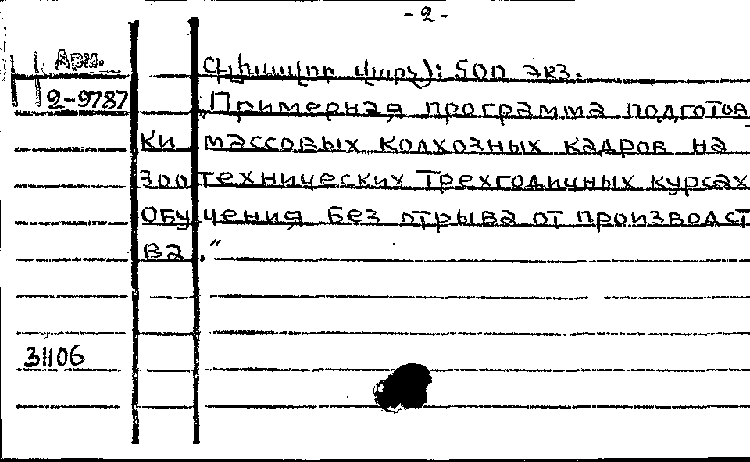 - 2 -
Арм.
Գլխավոր վարչ): 500 экз.
2-9787
„Примерная программа подготов
ки массовых колхозных кадров на
зоотехнических трехгодичных курсах
обучения без отрыва от производст
ва."
31106